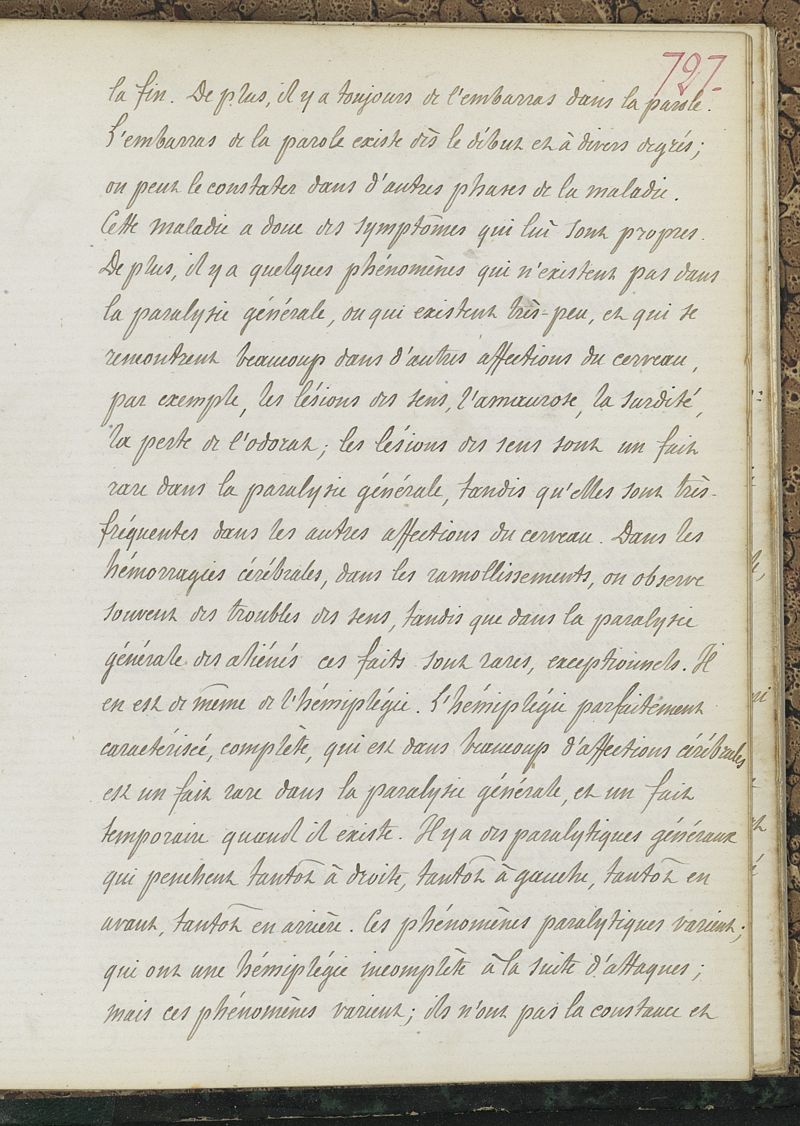 797
la fin. De plus, il y a toujours de l'embarras dans la parole.
L'embarras de la parole existe dès le début et à divers degrés;
on peut le constater dans d'autres phases de la maladie.
Cette maladie a donc des symptômes qui lui sont propres.
De plus, il y a quelques phénomènes qui n'existent pas dans
la paralysie générale, ou qui existent très-peu, et qui se
rencontrent beaucoup dans d'autres affections du cerveau,
par exemple, les lésions des sens, l'amaurose, la surdité,
la perte de l'odorat; les lésions des sens sont un fait
rare dans la paralysie générale, tandis qu'elles sont très-
fréquentes dans les autres affections du cerveau. Dans les
hémorragies cérébrales, dans les ramollissements, on observe
souvent des troubles des sens, tandis que dans la paralysie
générale des aliénés ces faits sont rares, exceptionnels. Il
en est de même de l'hémiplégie. L'hémiplégie parfaitement
caractérisée, complète, qui est dans beaucoup d'affections cérébrales
est un fait rare dans la paralysie générale, et un fait
temporaire quand il existe. Il y a des paralytiques généraux
qui penchent tantôt à droite, tantôt à gauche, tantôt en
avant, tantôt en arrière. Ces phénomènes paralytiques varient;
qui ont une hémiplégie incomplète à la suite d'attaques;
mais ces phénomènes varient; ils n'ont pas la constance et